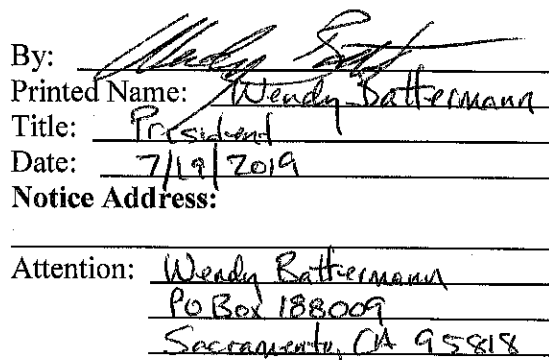 By: Wendy Batt
Printed Name: Wendy Battermann
Title: President
Date: 7/19/2019
Notice Address:
Attention: Wendy Battermann
PO Box 188009
Sacramento, CA 95818